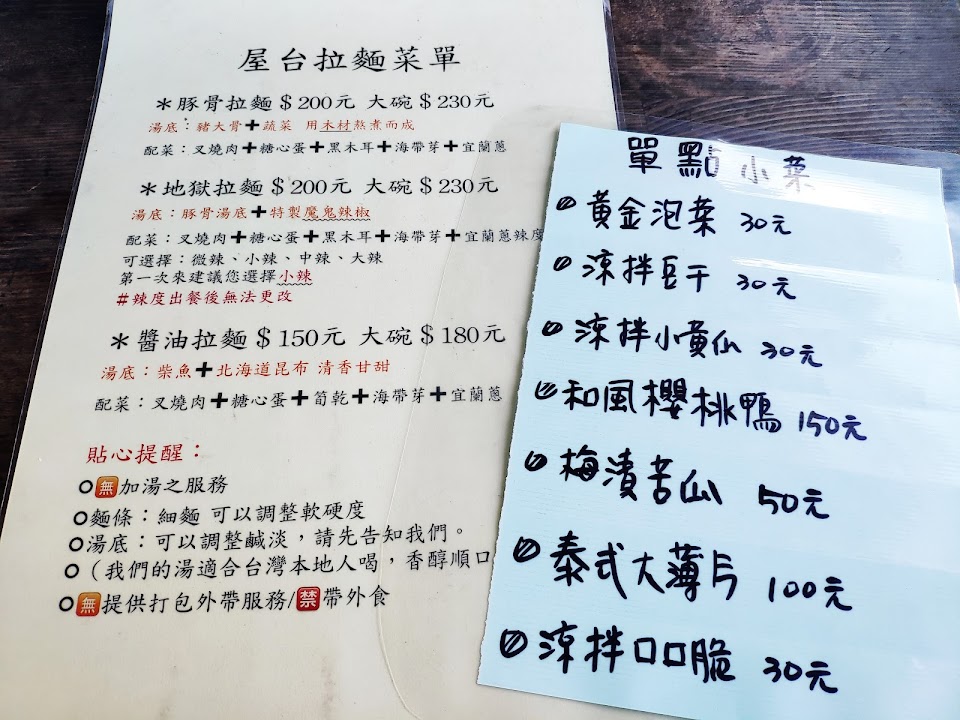 屋台拉麵菜單
＊豚骨拉麵＄200元 大碗＄230元
湯底：豬大骨✚蔬菜 用木材熬煮而成
配菜：叉燒肉✚糖心蛋✚黑木耳✚海帶芽✚宜蘭蔥
＊地獄拉麵＄200元 大碗＄230元
湯底：豚骨湯底✚特製魔鬼辣椒
配菜：叉燒肉✚糖心蛋✚黑木耳✚海帶芽✚宜蘭蔥辣度
可選擇：微辣、小辣、中辣、大辣
第一次來建議您選擇小辣
#辣度出餐後無法更改
＊醬油拉麵＄150元 大碗＄180元
湯底：柴魚✚北海道昆布 清香甘甜
配菜：叉燒肉✚糖心蛋✚筍乾✚海帶芽✚宜蘭蔥
貼心提醒：
○無加湯之服務
○麵條：細麵 可以調整軟硬度
○湯底：可以調整鹹淡，請先告知我們。
○（我們的湯適合台灣本地人喝，香醇順口
○無提供打包外帶服務/禁帶外食
單點小菜
黃金泡菜 30元
涼拌豆干 30元
涼拌小黃瓜 30元
和風櫻桃鴨 150元
梅漬苦瓜 50元
泰式大薄片 100元
涼拌口口脆 30元